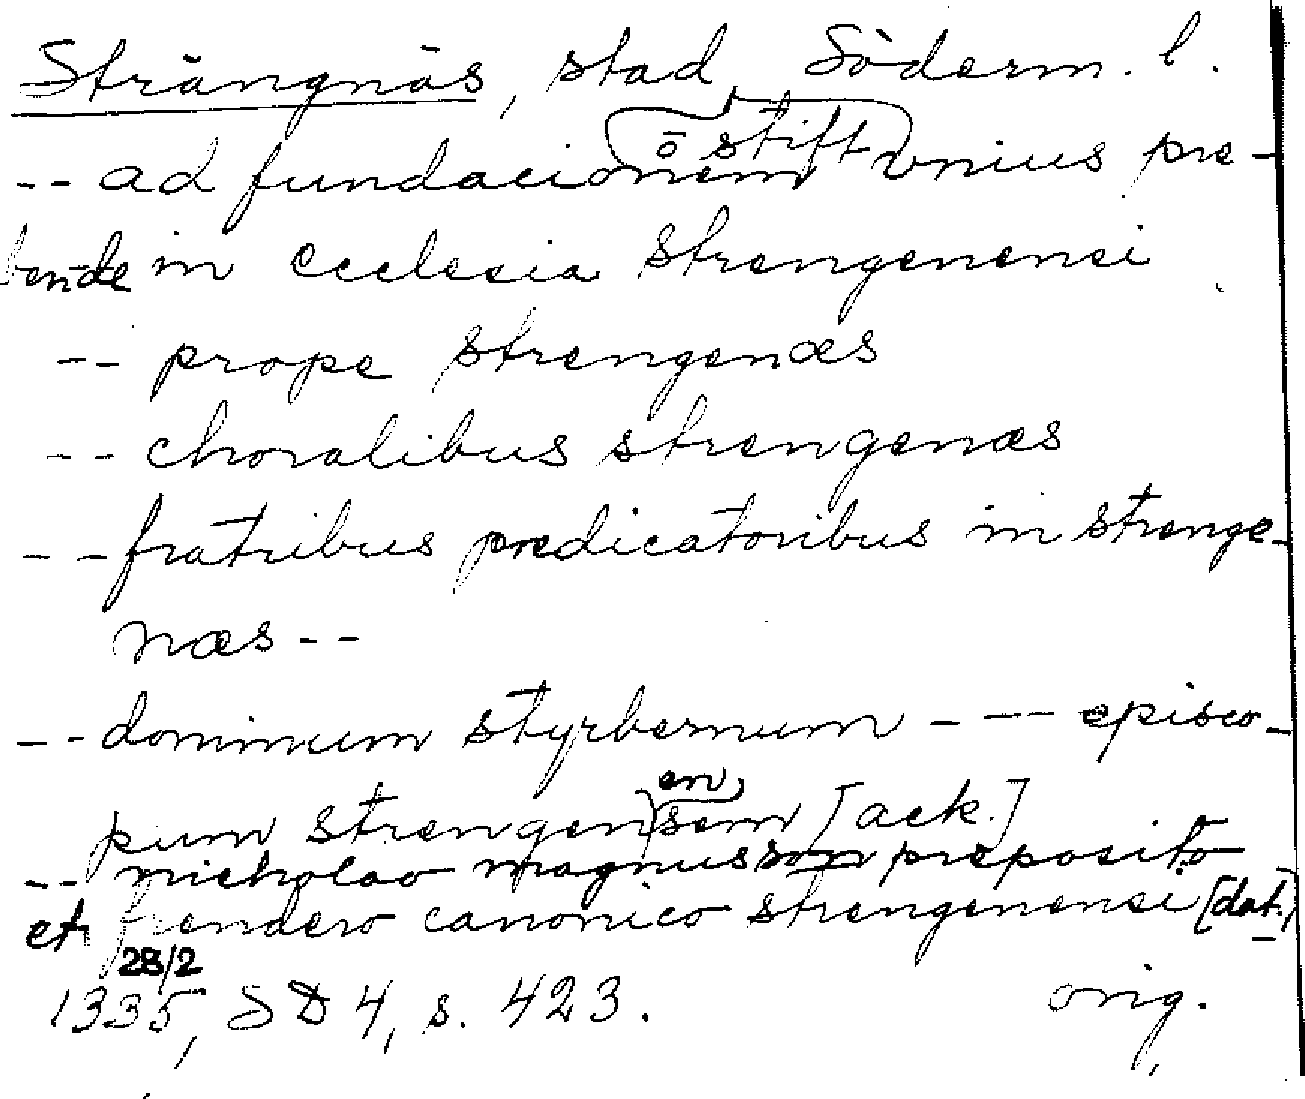 Strängnäs, stad, Söderm. l.
ō stift
-- ad fundacionem vnius pre-
bende in ecclesia strengenensi
-- prope strengenæs
-- choralibus strengenæs
-- fratribus predicatoribus in strenge-
næs --
-- dominum styrbernum - -- episco-
pum strengensem [ack.]
en
-- nicholao magnusson preposito
et frendero canonico strengenensi [dat.]
28/2
1335, SD 4, s. 423. orig.